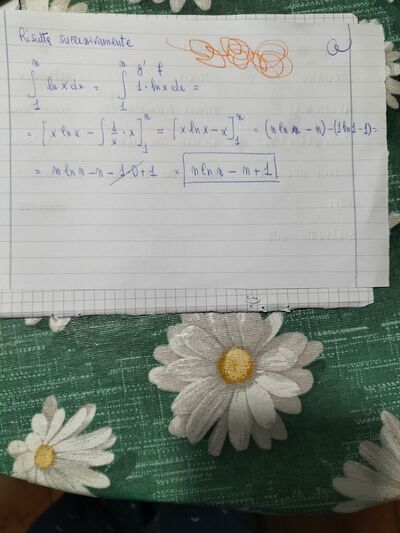 Risulta successivamente
∫₁ⁿ ln x dx = ∫₁ⁿ 1 · ln x dx =
g' f
= [x ln x − ∫ 1/x · x]₁ⁿ = [x ln x − x]₁ⁿ = (n ln n − n) − (1 ln 1 − 1) =
= n ln n − n − 1·0 + 1 = n ln n − n + 1